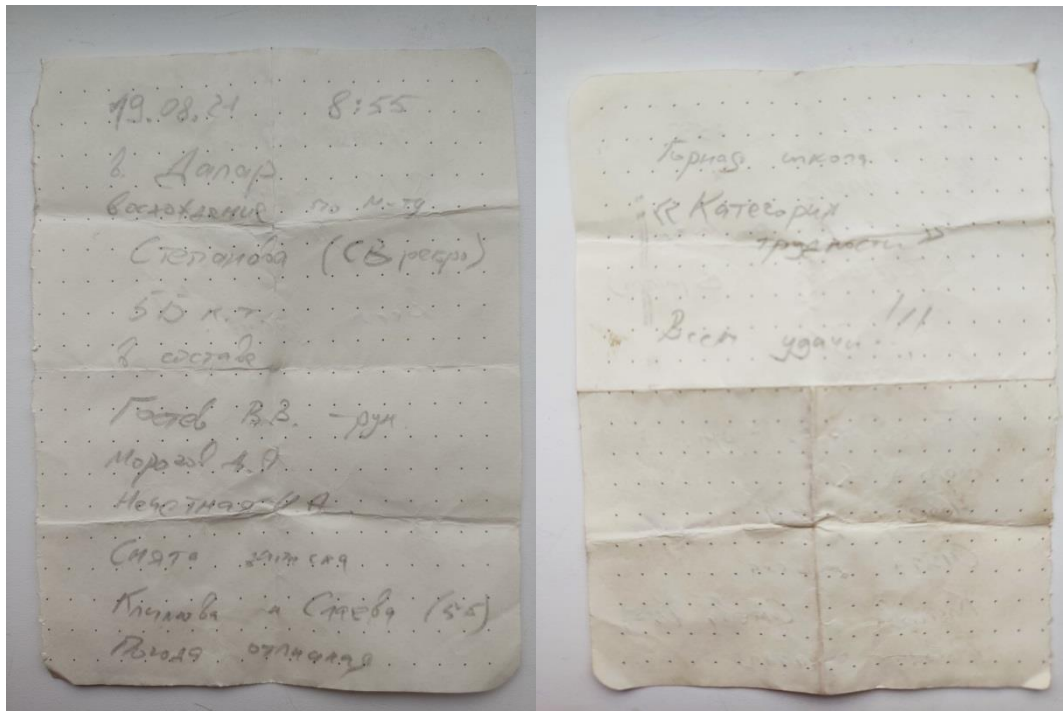 19.08.21 8:55
в. Далар
восхождение по м-ту
Степанова (СВ ребро)
5Б к.т.
в составе
Гостев В.В. - рук
Морозов А.
Нечетная А
Снята записка
Климова и Слаева (5Б)
Погода отличная
Горная школа
«Категория
трудности»
Всем удачи !!!